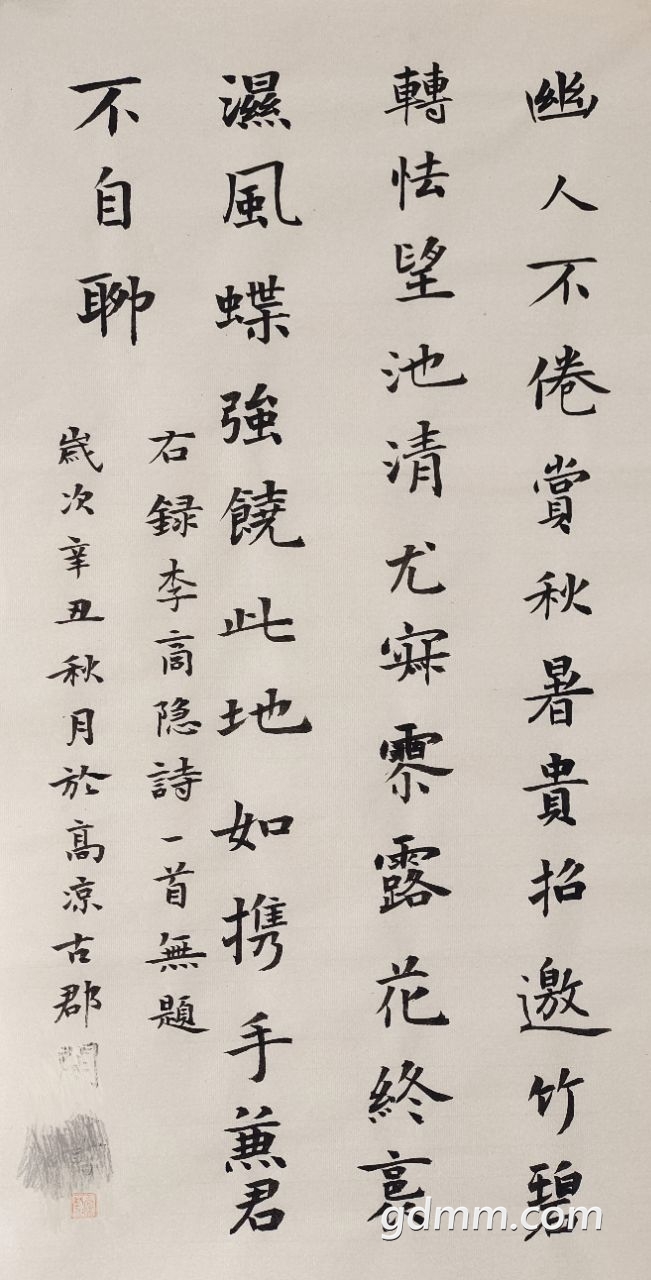 幽人不倦賞秋暑貴招邀竹碧
轉怯望池清尤寂寥露花終裛
濕風蝶強饒此地如携手兼君
不自聊
右録李商隐詩一首無題
嵗次辛丑秋月於高凉古郡
gdmm.com